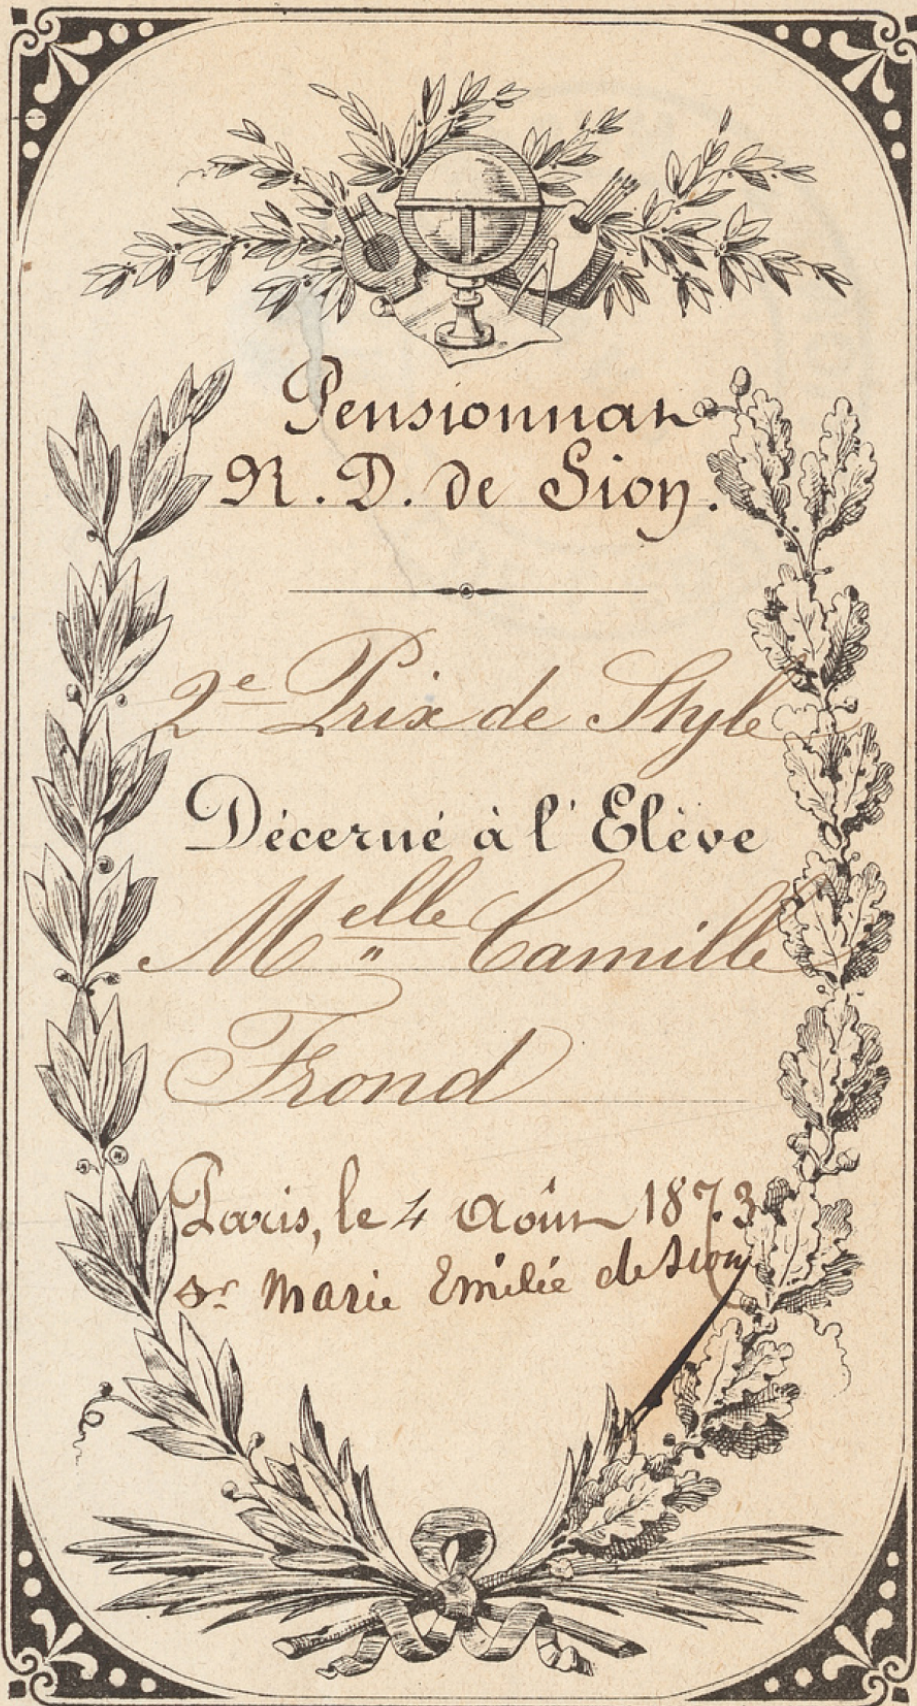 Pensionnat
N. D. de Sion.
2e Prix de Style
Décerné à l'Elève
Melle Camille
Frond
Paris, le 4 Août 1873.
Sr Marie Emilie de Sion